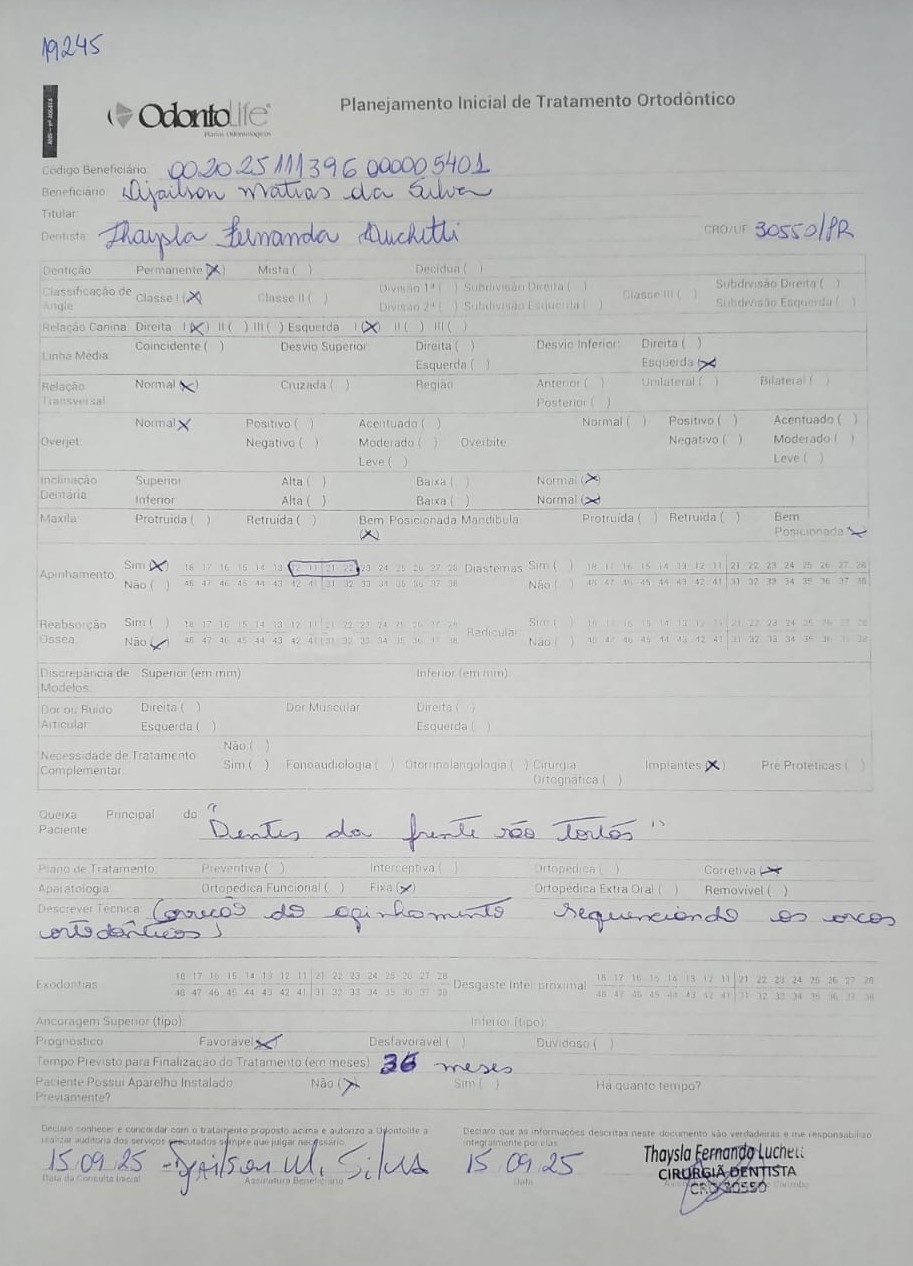 19245
OdontoLife
Planos Odontológicos
Planejamento Inicial de Tratamento Ortodôntico
Código Beneficiário: 00202511139600005401
Beneficiário: Djailson Matias da Silva
Titular:
Dentista: Thaysla Fernanda Luchetti CRO/UF 30550/PR
Dentição Permanente (X) Mista ( ) Decídua ( )
Classificação de Angle Classe I (X) Classe II ( ) Divisão 1ª ( ) Subdivisão Direita ( ) Classe III ( ) Subdivisão Direita ( )
Divisão 2ª ( ) Subdivisão Esquerda ( ) Subdivisão Esquerda ( )
Relação Canina: Direita I (X) II ( ) III ( ) Esquerda I (X) II ( ) III ( )
Linha Média: Coincidente ( ) Desvio Superior: Direita ( ) Desvio Inferior: Direita ( )
Esquerda ( ) Esquerda (X)
Relação Transversal Normal (X) Cruzada ( ) Região Anterior ( ) Unilateral ( ) Bilateral ( )
Posterior ( )
Overjet: Normal X Positivo ( ) Acentuado ( ) Overbite: Normal ( ) Positivo ( ) Acentuado ( )
Negativo ( ) Moderado ( ) Negativo ( ) Moderado ( )
Leve ( ) Leve ( )
Inclinação Dentária: Superior Alta ( ) Baixa ( ) Normal (X)
Inferior Alta ( ) Baixa ( ) Normal (X)
Maxila: Protruída ( ) Retruída ( ) Bem Posicionada (X) Mandíbula Protruída ( ) Retruída ( ) Bem Posicionada X
Apinhamento: Sim (X) 18 17 16 15 14 13 12 11 21 22 23 24 25 26 27 28 Diastemas Sim ( ) 18 17 16 15 14 13 12 11 21 22 23 24 25 26 27 28
Não ( ) 48 47 46 45 44 43 42 41 31 32 33 34 35 36 37 38 Não ( ) 48 47 46 45 44 43 42 41 31 32 33 34 35 36 37 38
Reabsorção Óssea: Sim ( ) 18 17 16 15 14 13 12 11 21 22 23 24 25 26 27 28 Radicular: Sim ( ) 18 17 16 15 14 13 12 11 21 22 23 24 25 26 27 28
Não (X) 48 47 46 45 44 43 42 41 31 32 33 34 35 36 37 38 Não ( ) 48 47 46 45 44 43 42 41 31 32 33 34 35 36 37 38
Discrepância de Modelos: Superior (em mm) Inferior (em mm):
Dor ou Ruído Articular: Direita ( ) Dor Muscular Direita ( )
Esquerda ( ) Esquerda ( )
Necessidade de Tratamento Complementar: Não ( )
Sim ( ) Fonoaudiologia ( ) Otorrinolangologia ( ) Cirurgia Ortognática ( ) Implantes (X) Pré Protéticas ( )
Queixa Principal do Paciente: "Dentes da frente são tortos"
Plano de Tratamento: Preventiva ( ) Interceptiva ( ) Ortopédica ( ) Corretiva (X)
Aparatologia: Ortopédica Funcional ( ) Fixa (X) Ortopédica Extra Oral ( ) Removível ( )
Descrever Técnica: Correção do apinhamento sequenciando os arcos
ortodônticos
Exodontias 18 17 16 15 14 13 12 11 21 22 23 24 25 26 27 28 Desgaste Inter proximal 18 17 16 15 14 13 12 11 21 22 23 24 25 26 27 28
48 47 46 45 44 43 42 41 31 32 33 34 35 36 37 38 48 47 46 45 44 43 42 41 31 32 33 34 35 36 37 38
Ancoragem Superior (tipo): Inferior (tipo)
Prognóstico Favorável X Desfavorável ( ) Duvidoso ( )
Tempo Previsto para Finalização do Tratamento (em meses): 36 meses
Paciente Possui Aparelho Instalado Previamente? Não (X) Sim ( ) Há quanto tempo?
Declaro conhecer e concordar com o tratamento proposto acima e autorizo a Odontolife a
realizar auditoria dos serviços executados sempre que julgar necessário.
Declaro que as informações descritas neste documento são verdadeiras e me responsabilizo
integralmente por elas.
15 09 25 Djailson M. Silva 15 09 25
Data da Consulta Inicial Assinatura Beneficiário Data
Thaysla Fernanda Luchett
CIRURGIÃ DENTISTA
CRO 30550